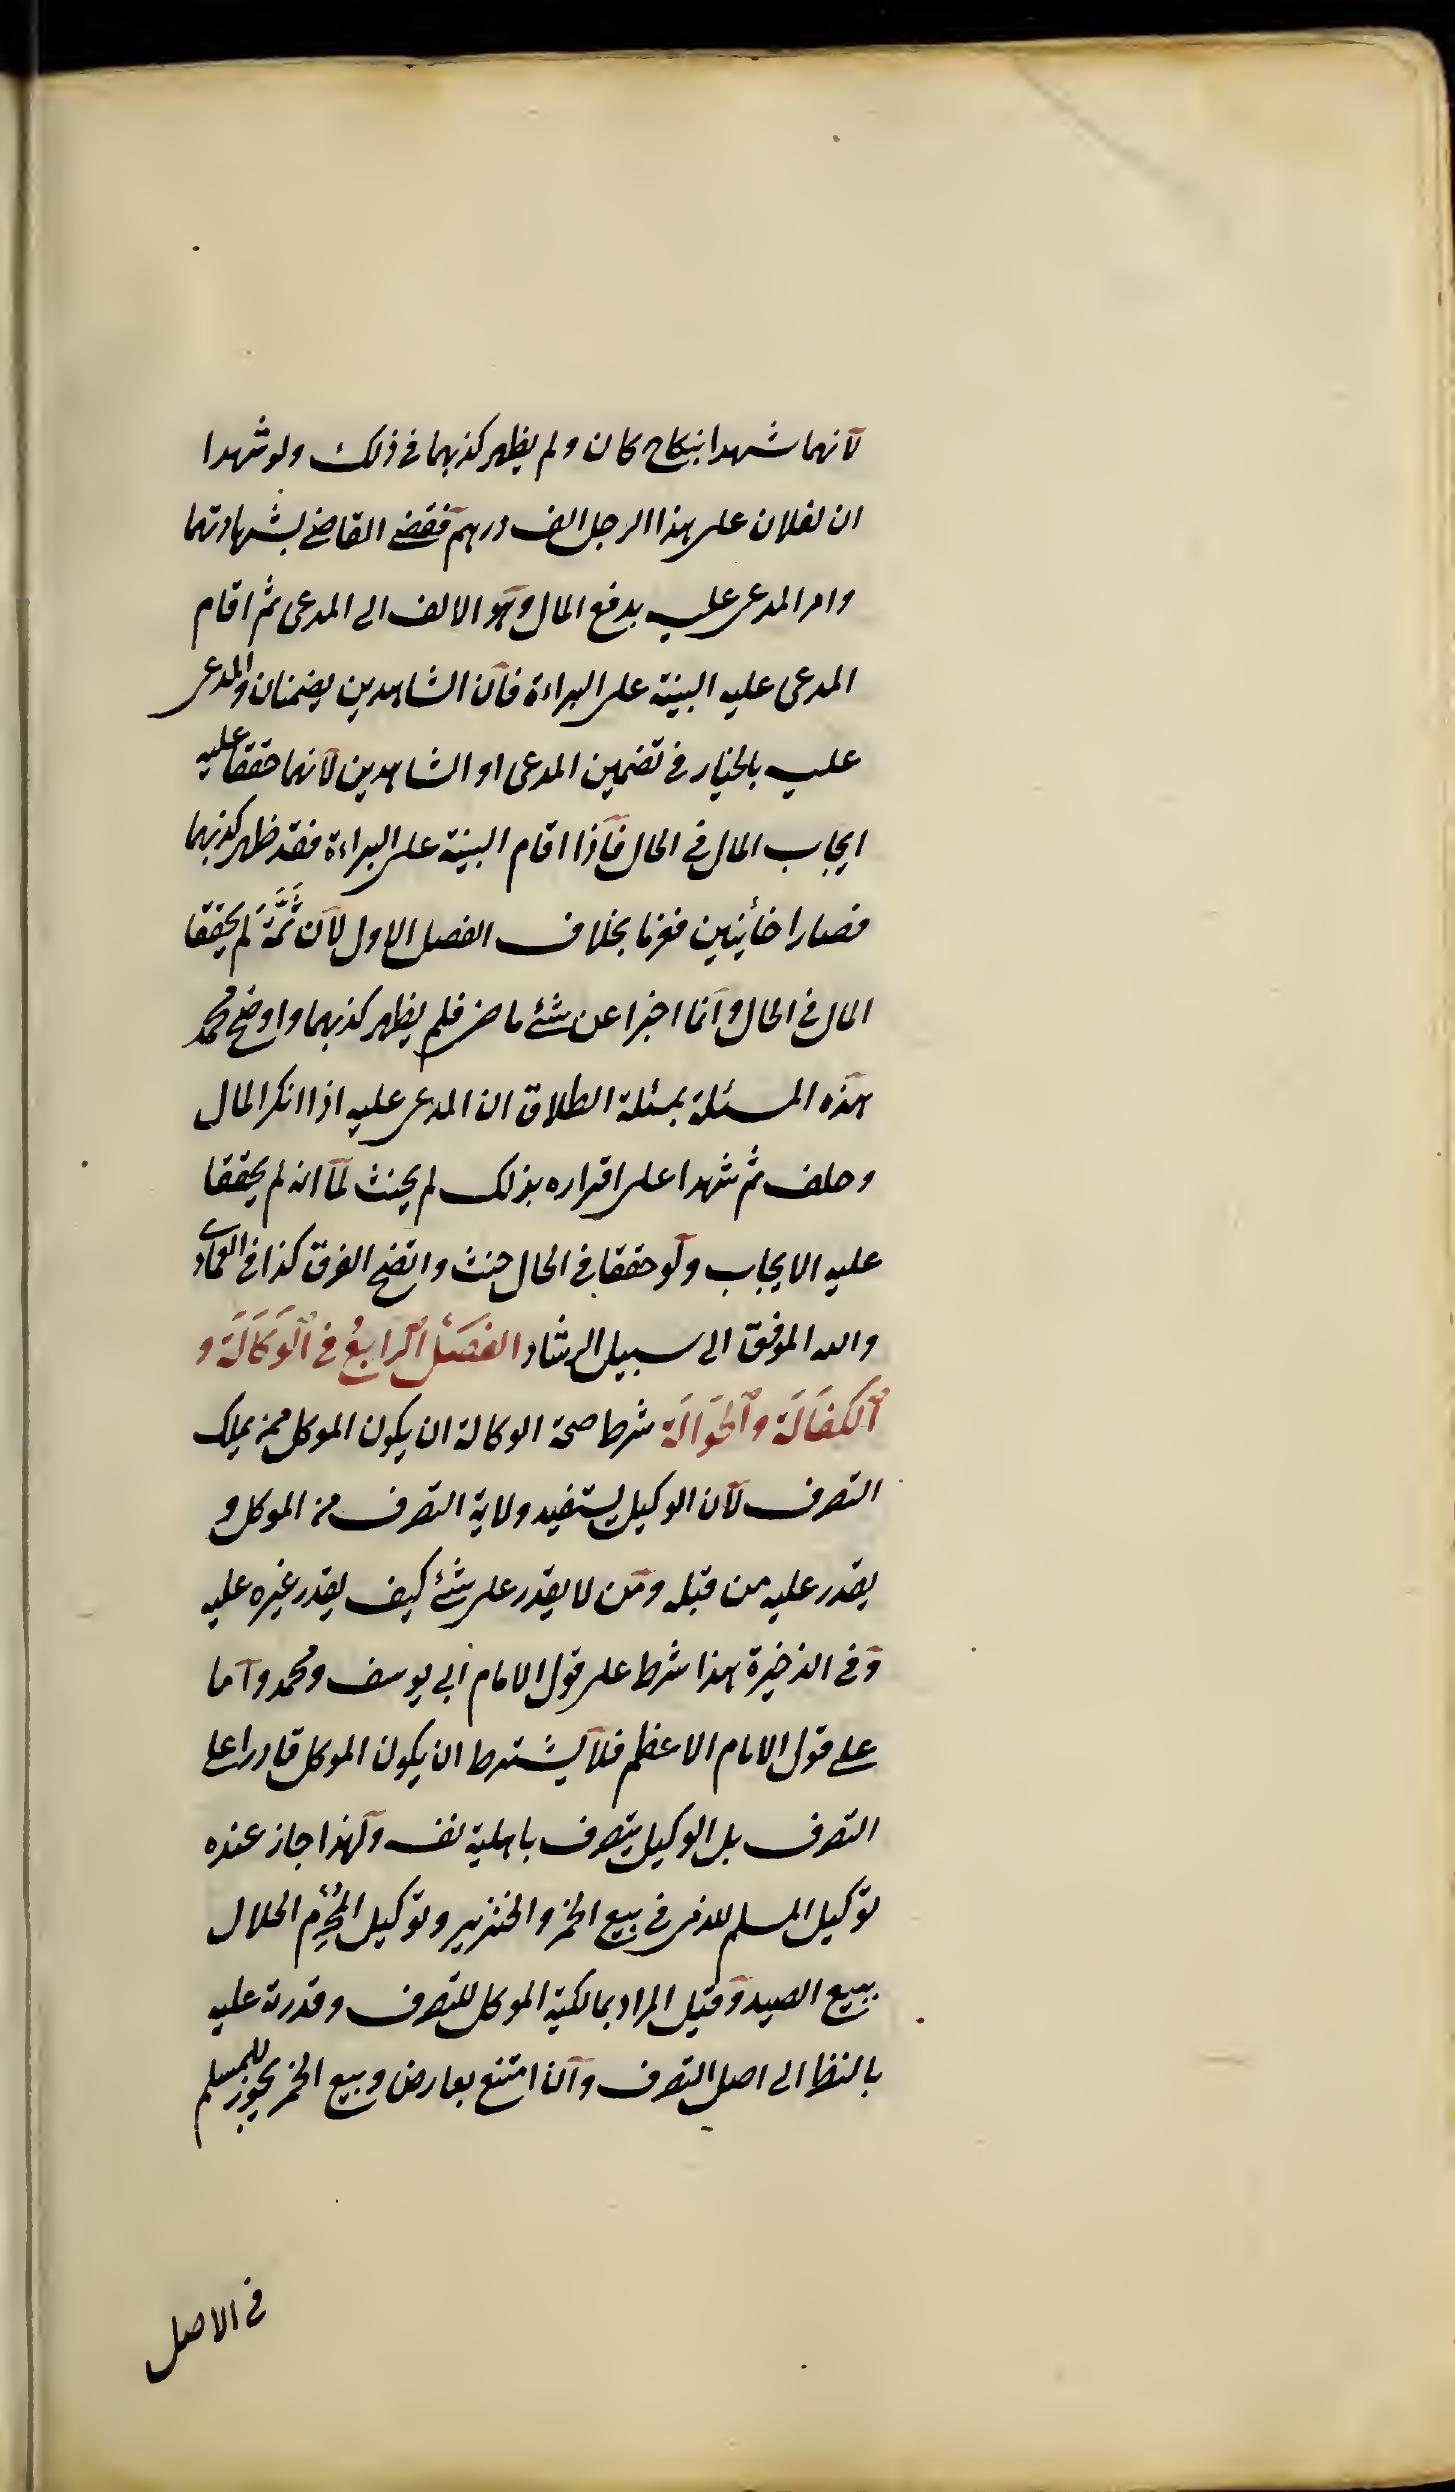 لانهما شهدا بنكاح كان ولم يظهر كذبهما فى ذلك ولو شهدا
ان لفلان على هذا الرجل الف درهم فقضى القاضى بشهادتهما
وامر المدعى عليه بدفع المال وهو الالف الى المدعى ثم اقام
المدعى عليه البينة على البراءة فان الشاهدين يضمنان والمدعى
عليه بالخيار فى تضمين المدعى او الشاهدين لانهما حققا عليه
ايجاب المال فى الحال فاذا اقام البينة على البراءة فقد ظهر كذبهما
فصارا خائنين فغرما بخلاف الفصل الاول لان ثَمَّةَ لم يحققا
المال فى الحال وانما اخبرا عن شئ ماض فلم يظهر كذبهما واوضح محمد
هذه المسئلة بمسئلة الطلاق ان المدعى عليه اذا انكر المال
وحلف ثم شهدا على اقراره بذلك لم يحنث لما انه لم يحققا
عليه الايجاب ولو حققا فى الحال حنث واتضح الفرق كذا فى العمادى
والله الموفق الى سبيل الرشاد الفصل الرابع فى الوكالة و
الكفالة والحوالة شرط صحة الوكالة ان يكون الموكل ممن يملك
التصرف لان الوكيل يستفيد ولاية التصرف من الموكل و
يقدر عليه من قبله ومن لا يقدر على شئ كيف يقدر غيره عليه
وفى الذخيرة هذا شرط على قول الامام ابى يوسف ومحمد واما
على قول الامام الاعظم فلا يشترط ان يكون الموكل قادرا على
التصرف بل الوكيل يتصرف باهلية نفسه ولهذا جاز عنده
توكيل المسلم للذمى فى بيع الخمر والخنزير وتوكيل المُحْرِم الحلال
ببيع الصيد وقيل المراد بمالكية الموكل للتصرف وقدرته عليه
بالنظر الى اصل التصرف وان امتنع بعارض وبيع الخمر يجوز للمسلم
فى الاصل